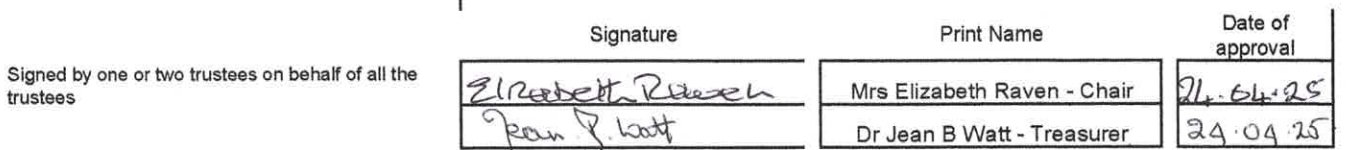 Signature Print Name Date of approval
Signed by one or two trustees on behalf of all the trustees
Elizabeth Raven Mrs Elizabeth Raven - Chair 24.04.25
Jean P. Watt Dr Jean B Watt - Treasurer 24.04.25